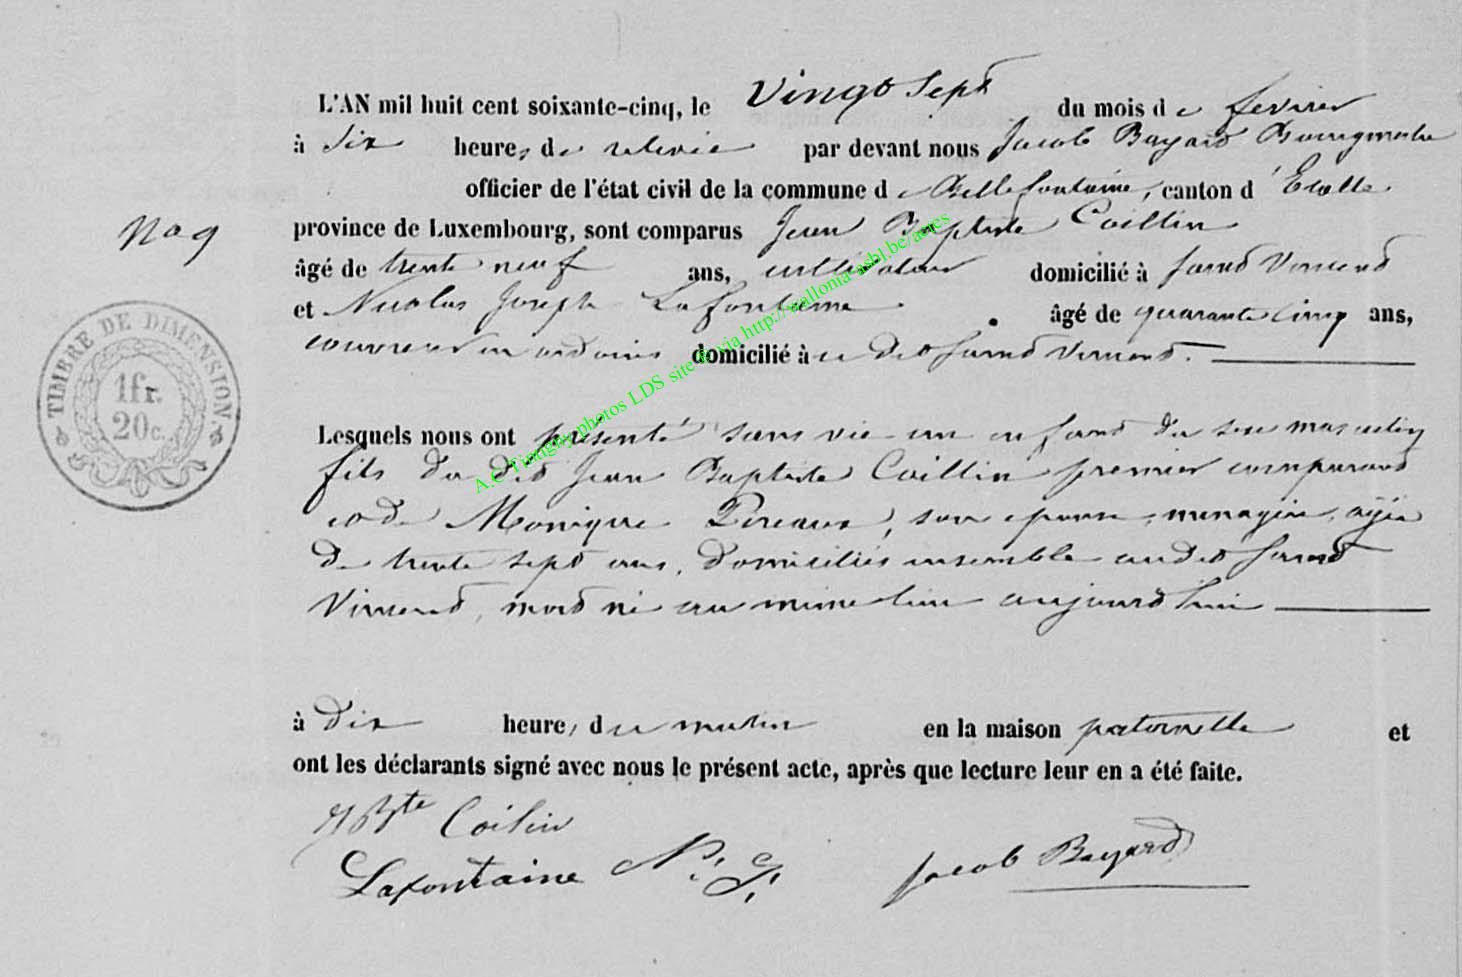 L'AN mil huit cent soixante-cinq, le Vingt Sept du mois de fevrier
à Six heures de relevée par devant nous Jacob Bayard Bourgmestre
officier de l'état civil de la commune de Bellefontaine, canton d'Etalle
province de Luxembourg, sont comparus Jean Baptiste Coillin
No 9
âgé de trente neuf ans, cultivateur domicilié à Saint Vincent
et Nicolas Joseph Lafontaine âgé de quarante cinq ans,
couvreur en ardoises domicilié à Saint Vincent.
TIMBRE DE DIMENSION
1fr.
20c.
Lesquels nous ont présenté sans vie un enfant du sexe masculin
fils du dit Jean Baptiste Coillin premier comparant
et de Monique son epouse, menagère, agée
de trente sept ans, domiciliés ensemble audit Saint
Vincent, mort né au même lieu aujourd'hui
à dix heures du matin en la maison paternelle et
ont les déclarants signé avec nous le présent acte, après que lecture leur en a été faite.
JBte Coilin
Lafontaine N. J. Jacob Bayard
A.C Tintigny photos LDS site & via http://wallonia-asbl.be/actes